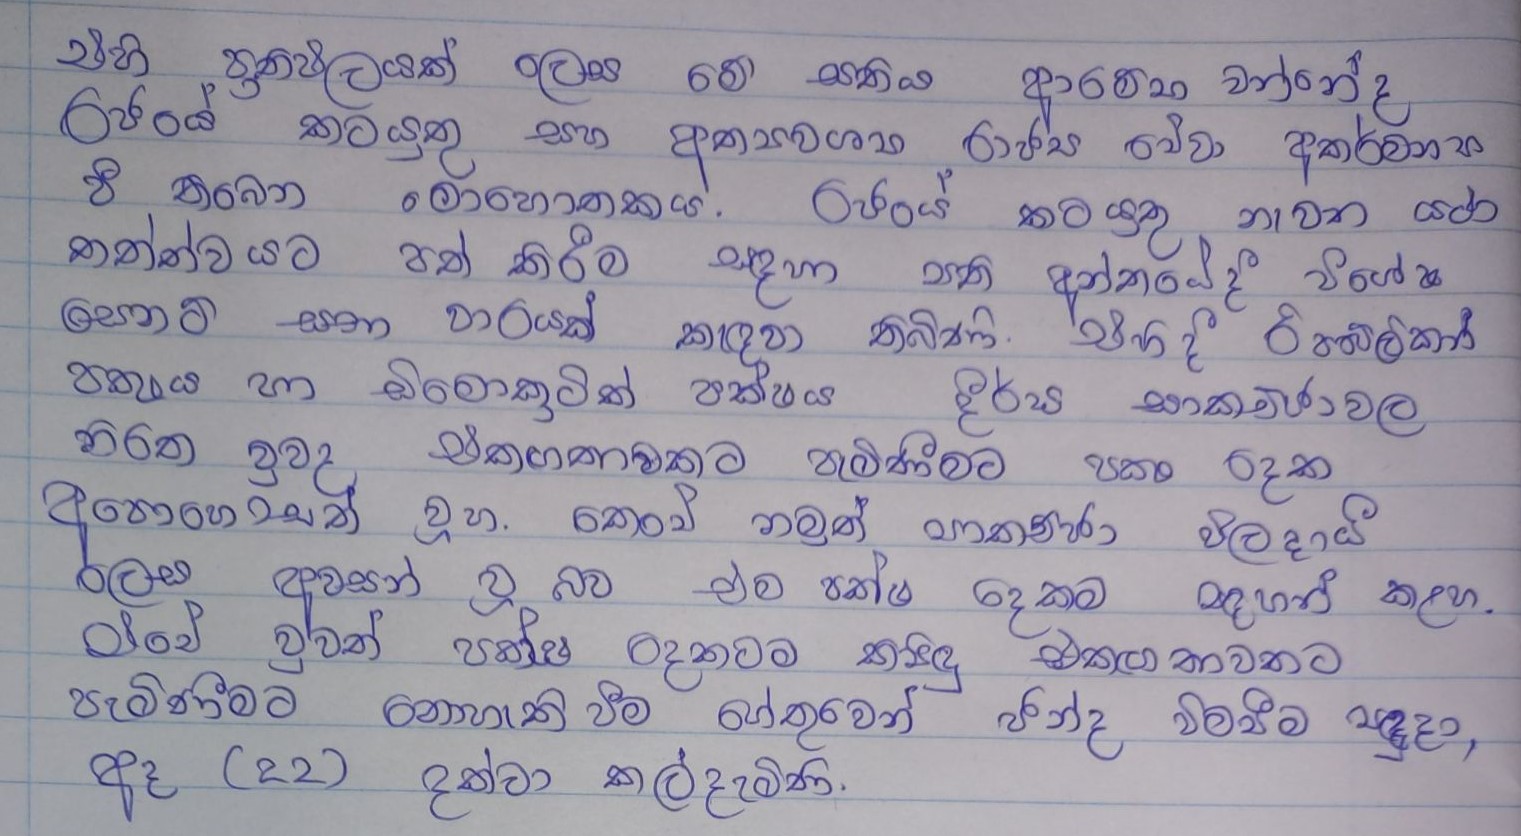 එහි ප්‍රතිඵලයක් ලෙස මේ සතිය ආරම්භ වන්නේද
රජයේ කටයුතු සහ අත්‍යවශ්‍ය රාජ්‍ය සේවා අකර්මන්‍ය
වී තිබෙන මොහොතකය. රජයේ කටයුතු නැවත යථා
තත්ත්වයට පත් කිරීම සඳහා සති අන්තයේදී විශේෂ
සෙනට් සභා වාරයක් කැඳවා තිබිණි. එහිදී රිපබ්ලිකන්
පක්ෂය හා ඩිමොක්‍රටික් පක්ෂය දීර්ඝ සාකච්ඡාවල
නිරත වුවද එකඟතාවකට පැමිණීමට පක්ෂ දෙක
අපොහොසත් වූහ. කෙසේ නමුත් සාකච්ඡා ඵලදායී
ලෙස අවසන් වූ බව එම පක්ෂ දෙකම සඳහන් කළහ.
එසේ වුවත් පක්ෂ දෙකටම කිසිඳු එකඟතාවකට
පැමිණීමට නොහැකි වීම හේතුවෙන් ඡන්ද විමසීම සඳුදා,
අද (22) දක්වා කල් දැමිණි.